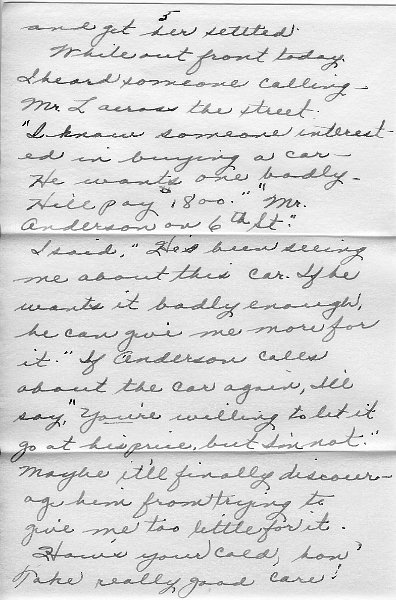 5
and get her settled.
While out front today,
I heard someone calling -
Mr. L across the street.
"I know someone interest-
ed in buying a car -
He wants one badly -
He'll pay $1800." "Mr.
Anderson on 6th St."
I said, "He's been seeing
me about this car. If he
wants it badly enough,
he can give me more for
it." If Anderson calls
about the car again, I'll
say, "You're willing to let it
go at his price, but I'm not."
Maybe it'll finally discour-
age him from trying to
give me too little for it.
How's your cold, hon?
Take really good care!